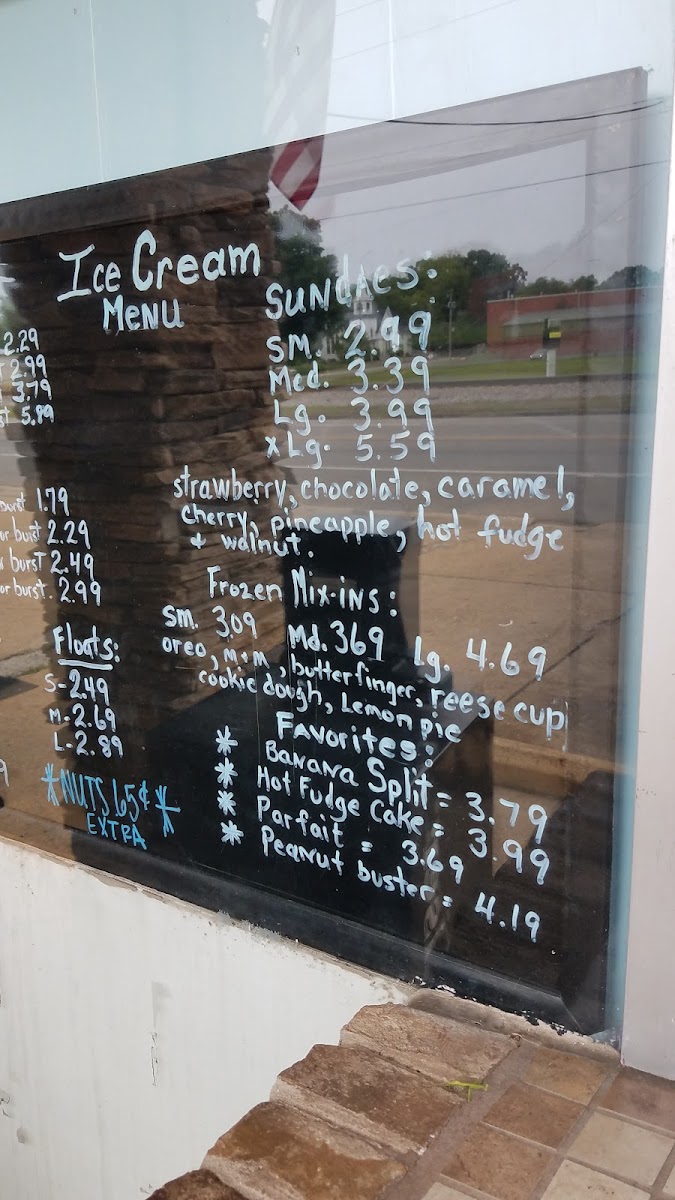 Ice Cream
Menu
2.29
2.99
3.79
5.89
burst 1.79
burst 2.29
burst 2.49
or burst. 2.99
Floats:
S-2.49
M-2.69
L-2.89
*NUTS 65¢*
EXTRA
SUNdAeS:
SM. 2.99
Med. 3.39
Lg. 3.99
xLg. 5.59
strawberry, chocolate, caramel,
cherry, pineapple, hot fudge
+ walnut.
Frozen Mix-ins:
Sm. 3.09 Md. 369 Lg. 4.69
oreo, m+m, butterfinger, reese cup
cookie dough, Lemon pie
FAVorites:
* BANANA Split = 3.79
* Hot Fudge Cake = 3.99
* Parfait = 3.69
* Peanut buster = 4.19